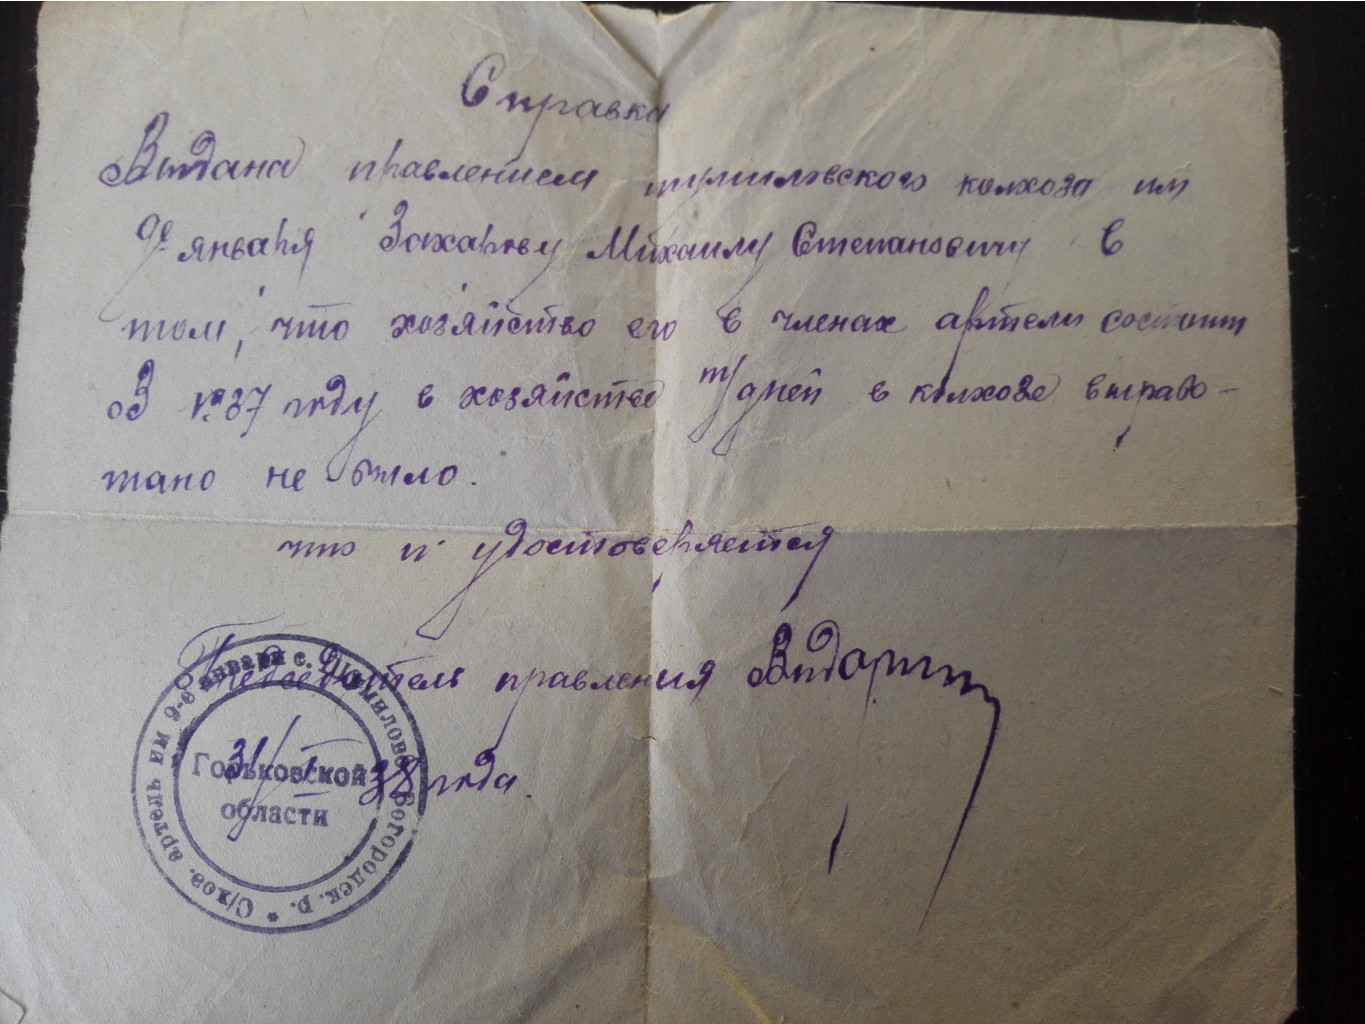 Справка
Выдана правлением шумиловского колхоза им
9е января Захарову Михаилу Степановичу в
том, что хозяйство его в членах артели состоит
В 1937 году в хозяйстве тр/дней в колхозе вырабо-
тано не было.
что и удостоверяется
Председатель правления
31/I 38 года.
С/хоз. артель им 9-е января с. Шумилово Богородск. р. *
Горьковской
области